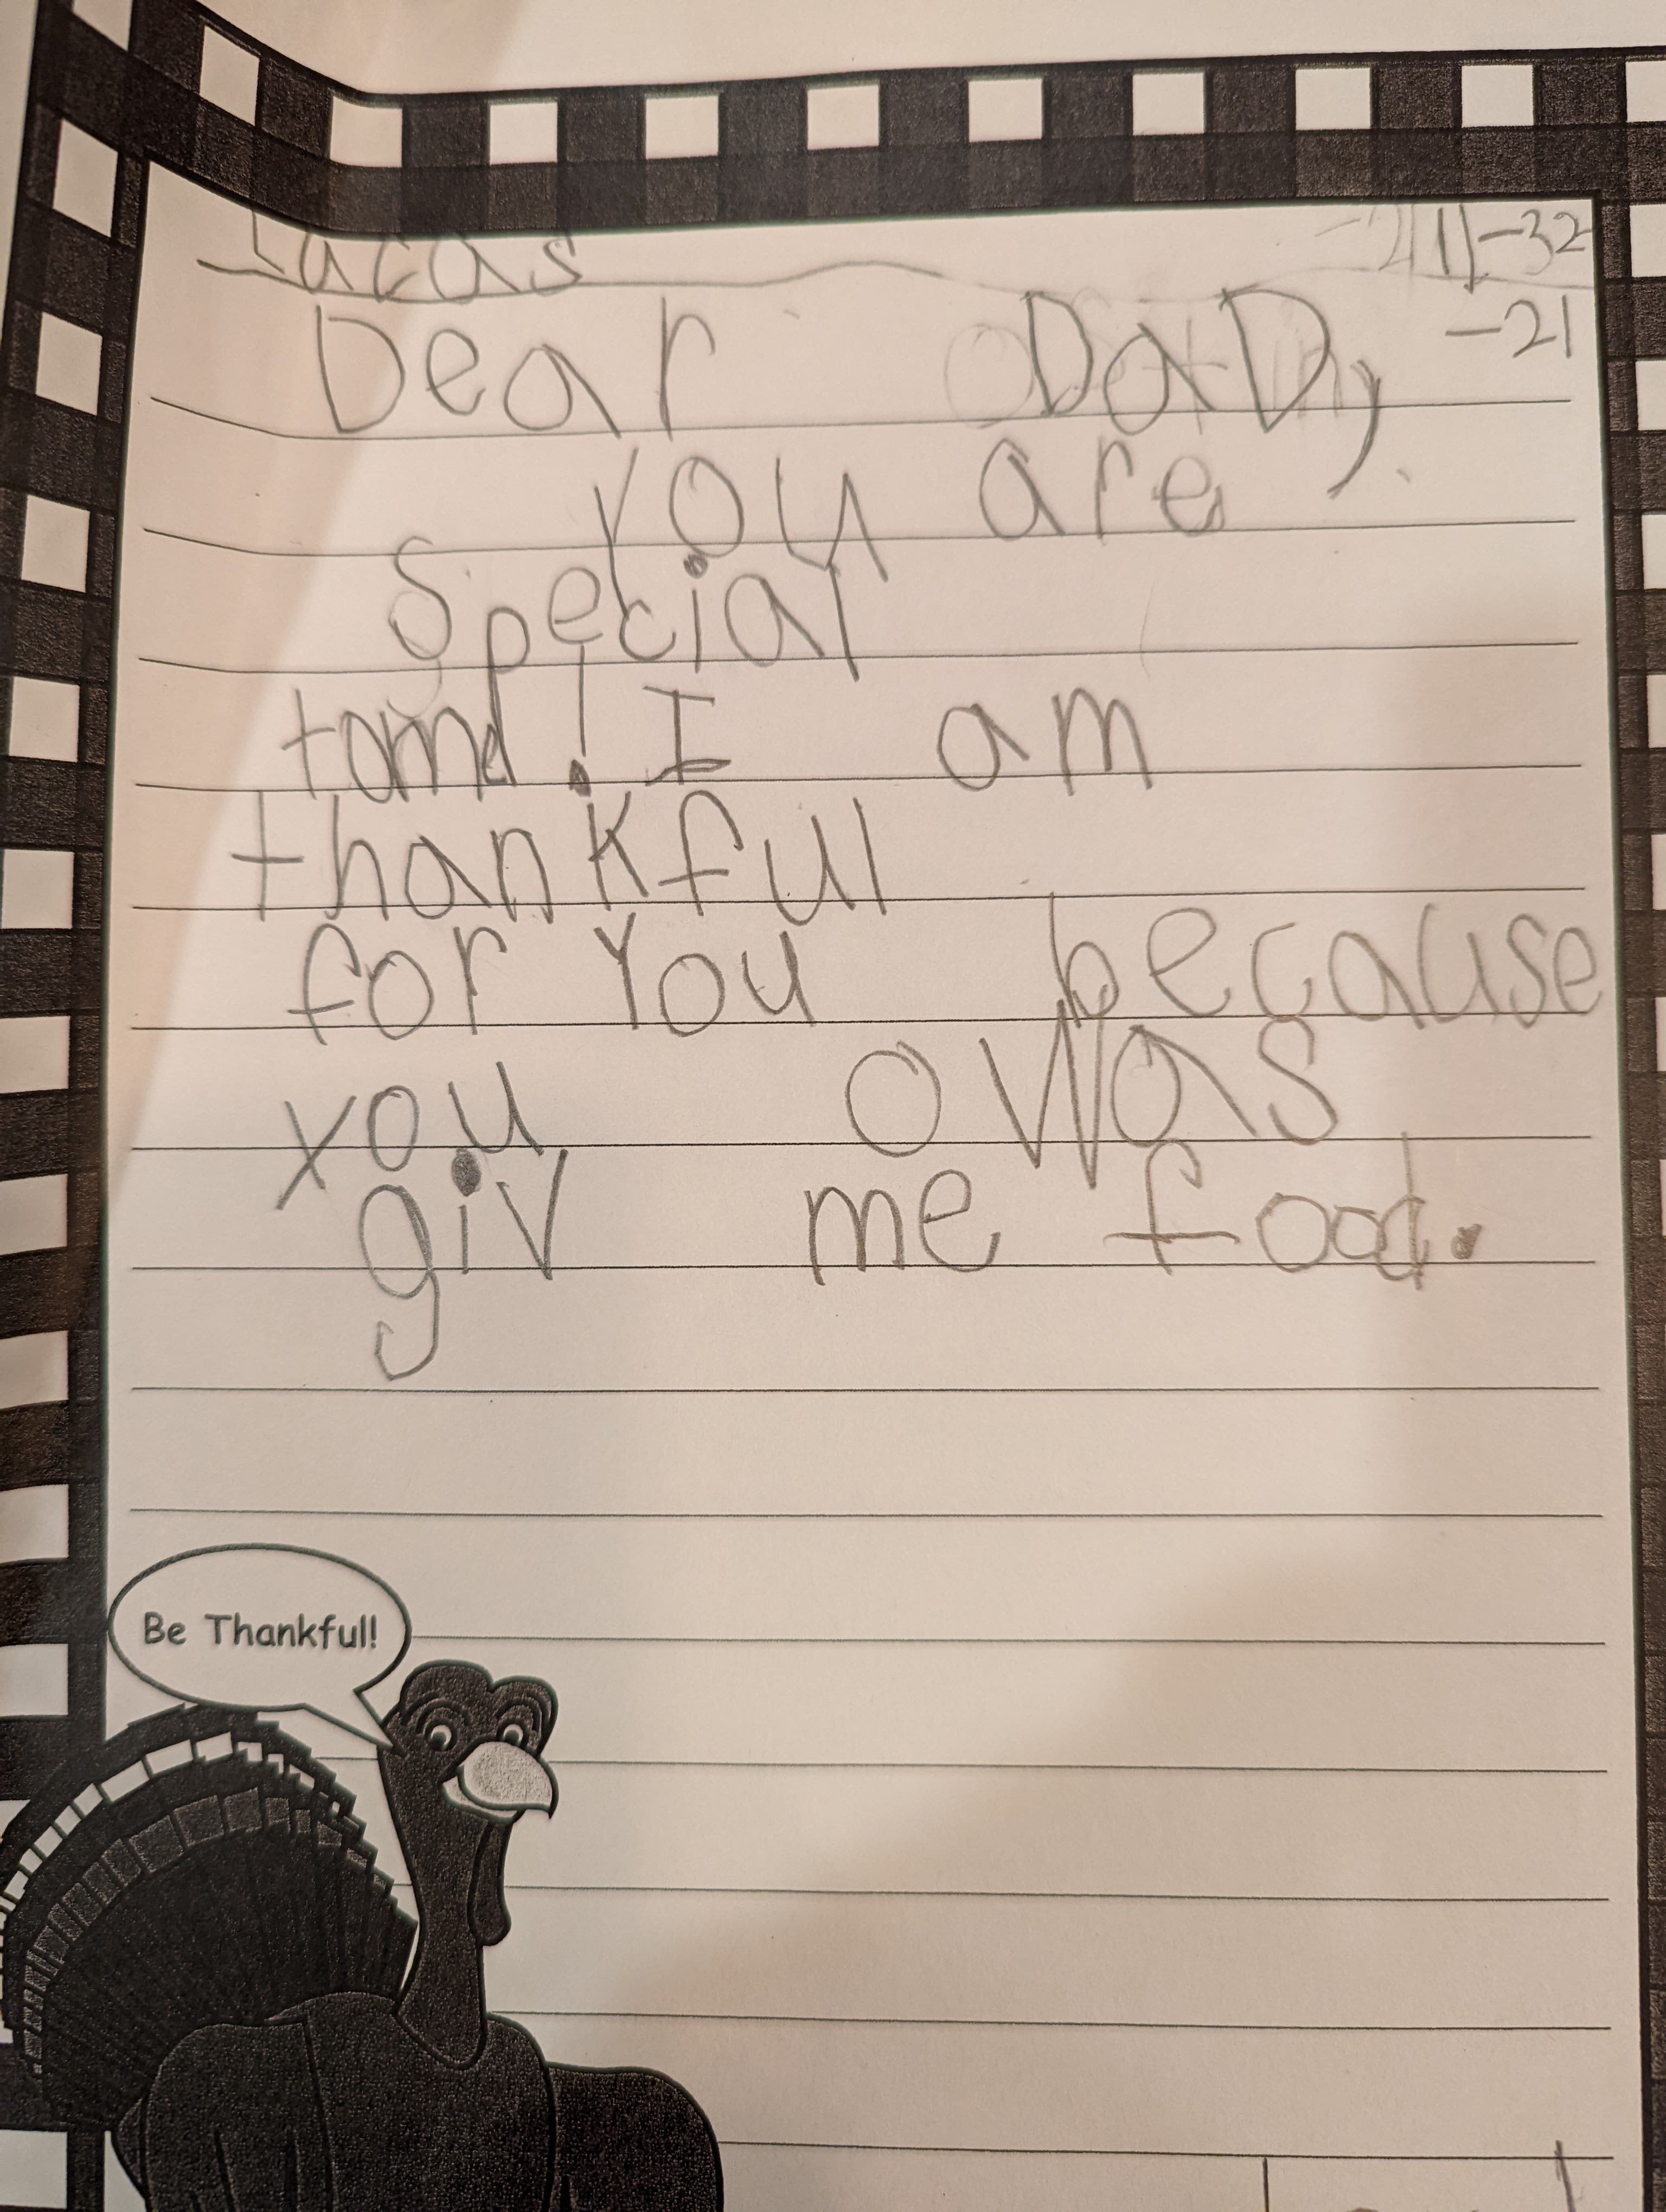 Lucas 11-32
-21
Dear DaD,
You are
special
tomd! I am
thankful
for You because
you owas
giv me food.
Be Thankful!